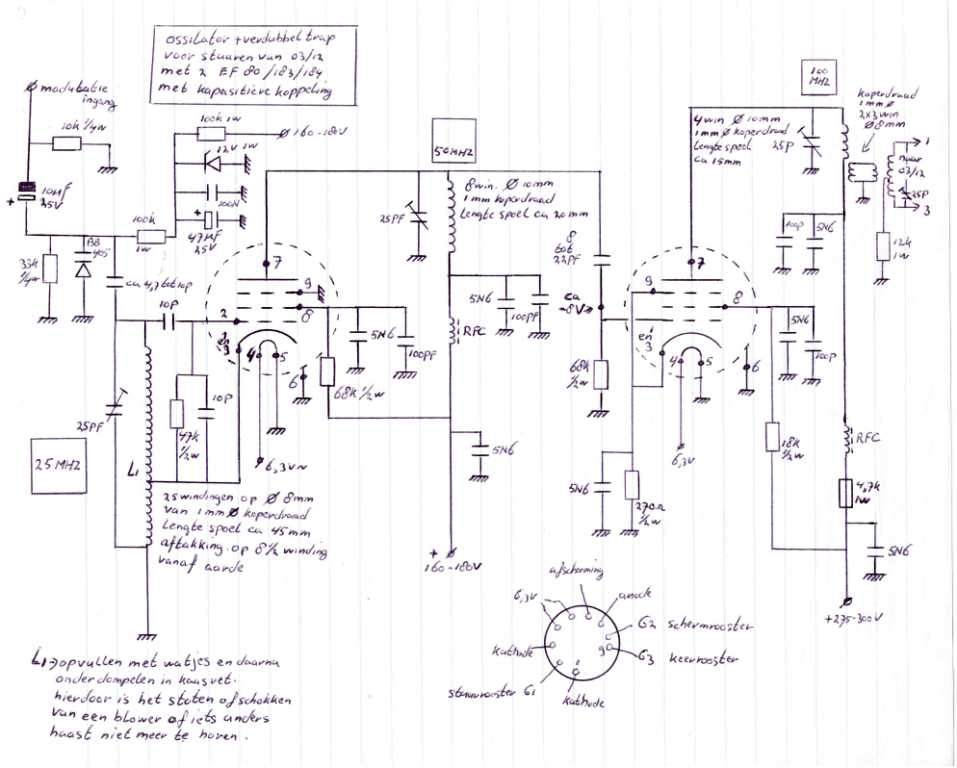 ossilator + verdubbeltrap
voor stuuren van 03/12
met 2 EF 80/183/184
met kapasitieve koppeling
modulatie
ingang
10k ¼w
100k 1w
160-180V
12V 1w
100N
47µF
25V
10µF
25V
+
+
100k
1w
33k
¼w
BB
405
10P
2
7
9
8
4
5
6
3
10P
47k
½w
25PF
L1
25MHZ
6,3V~
25 windingen op Ø 8mm
van 1mm Ø koperdraad
Lengte spoel ca 45mm
aftakking op 8½ winding
vanaf aarde
50MHZ
8win. Ø 10mm
1mm Ø koperdraad
Lengte spoel ca 20mm
25PF
5N6
100PF
RFC
5N6
100PF
68k ½w
5N6
+
160-180V
8
tot
22PF
ca
-8V
68k
½w
100
MHZ
4win Ø 10mm
1mm Ø koperdraad
Lengte spoel
ca 15mm
25P
koperdraad
1mm Ø
2x3win
Ø 8mm
1
naar
03/12
25P
3
12k
1w
100P
5N6
7
9
8
en
3
4
5
6
5N6
100P
6,3V
5N6
270Ω
½w
18k
½w
RFC
4,7k
1w
5N6
+275-300V
afscherming
6,3V
anode
G2 schermrooster
kathode
9
G3 keerrooster
1
stuurrooster G1
kathode
L1 → opvullen met watjes en daarna
onderdompelen in kaasvet.
hierdoor is het stoten of schokken
van een blower of iets anders
haast niet meer te horen.